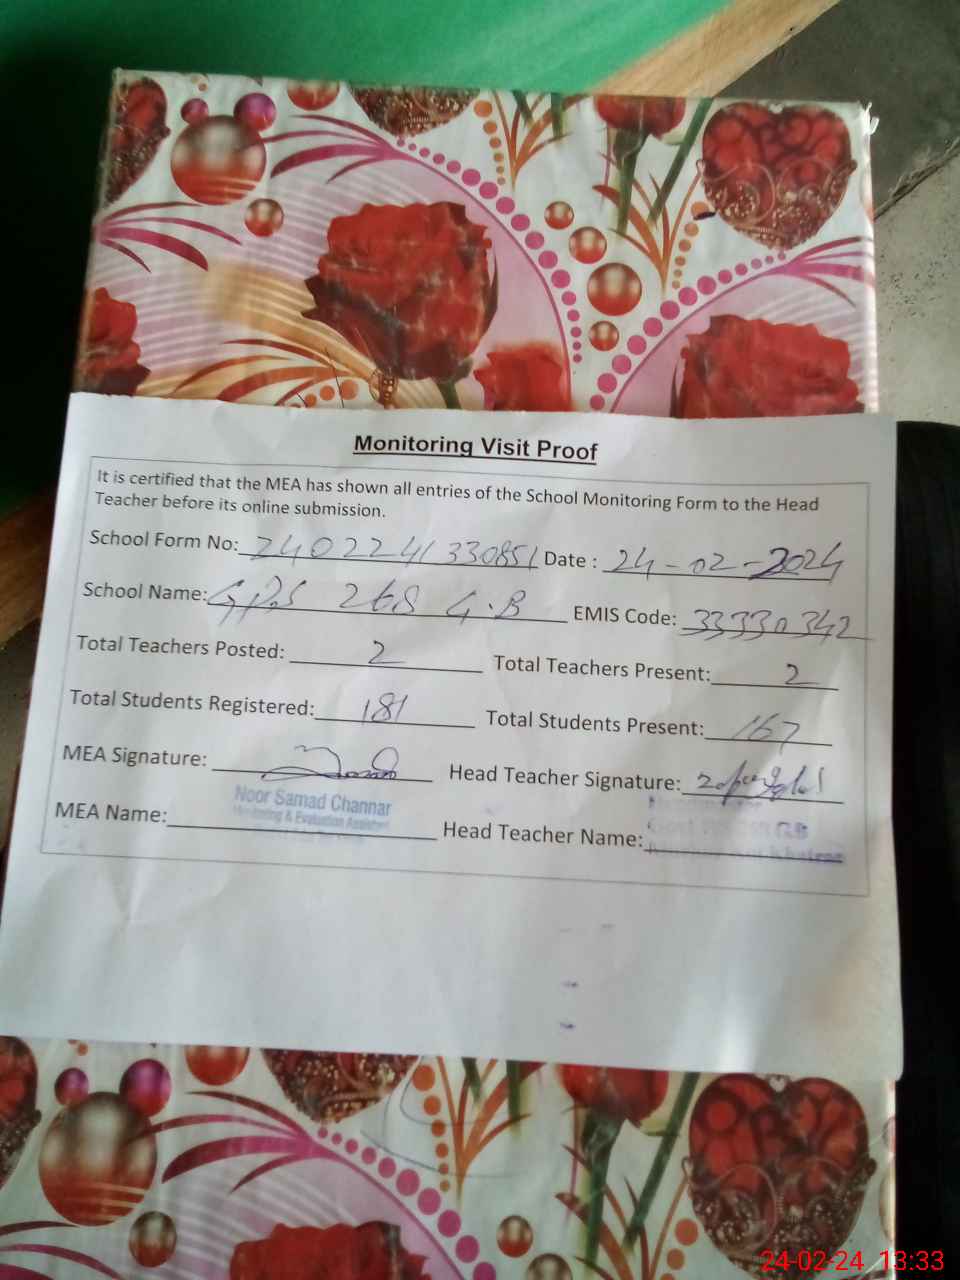 Monitoring Visit Proof
It is certified that the MEA has shown all entries of the School Monitoring Form to the Head
Teacher before its online submission.
School Form No: 24022241330851 Date : 24-02-2024
School Name: GPS 268 G.B EMIS Code: 33330342
Total Teachers Posted: 2 Total Teachers Present: 2
Total Students Registered: 181 Total Students Present: 167
MEA Signature: Head Teacher Signature:
Noor Samad Channar
Monitoring & Evaluation Assistant
MEA Name: Head Teacher Name:
24-02-24 13:33